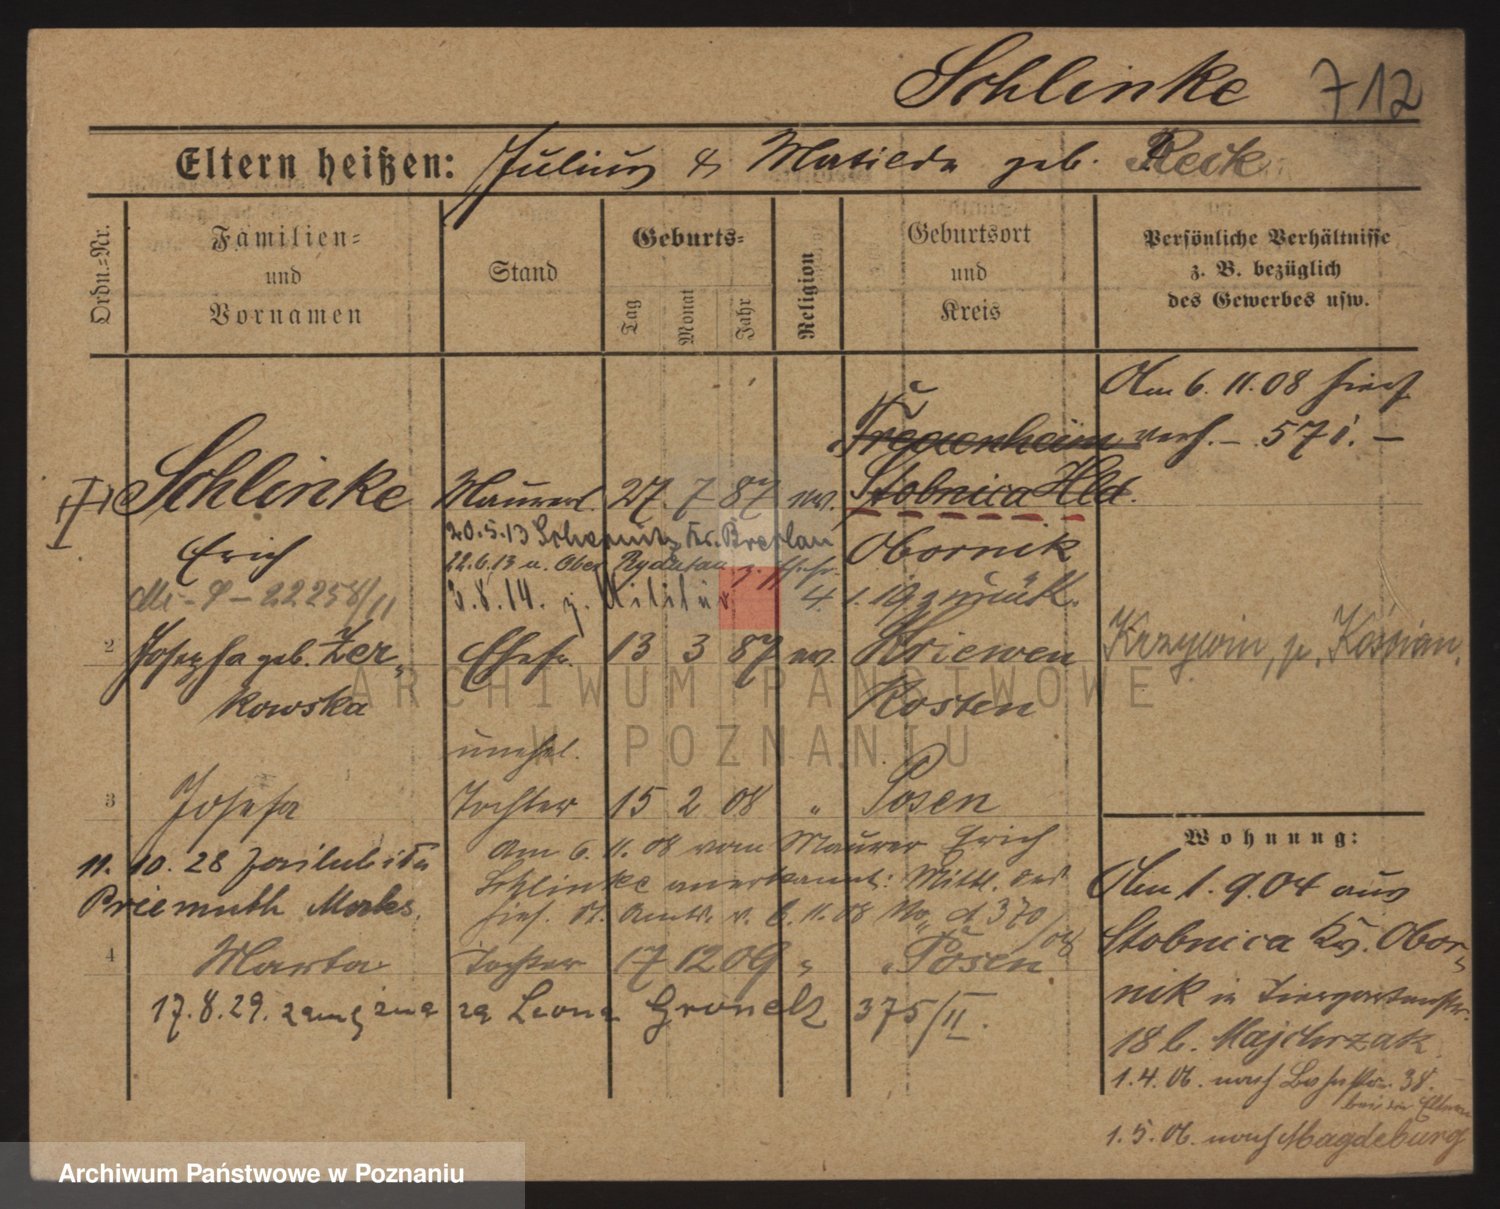 Schlinke 712
Eltern heißen: Julius & Matilda geb. Reck
Ordn.-Nr.
Familien- und Vornamen
Stand
Geburts-
Tag
Monat
Jahr
Religion
Geburtsort und Kreis
Persönliche Verhältnisse
z. B. bezüglich
des Gewerbes usw.
Am 6. 11. 08 hier
verh. – 571. –
Schlinke Maurerl. 27 7 87 ev. Stobnica Hld.
20.5.13 Kr. Breslau
Erich
Obornik
22.6.13 n. Ober
3.8.14. z. Militär 4. 1. 19 zurück.
2 Josepha geb. Zer-
kowska
Ehefr. 13 3 87 ev. Kriewen
Kosten
Krzywin, p. Kościan.
unehel.
3 Josefa Tochter 15 2 08 " Posen
Am 6. 11. 08 vom Maurer Erich
Schlinke anerkannt: Mittl. des
hies. St. Amts. v. 6. 11. 08 No 370/08
11. 10. 28
Priemuth
4 Marta Tochter 17 12 09 " Posen
17. 8. 29. zamężna za Leona 375/II.
Wohnung:
Am 1. 9. 04 aus
Stobnica Kr. Obor-
nik in
18 b. Majchrzak
1. 4. 06. nach 38.
bei den Eltern
1. 5. 06. nach Magdeburg
ARCHIWUM PAŃSTWOWE
W POZNANIU
Archiwum Państwowe w Poznaniu